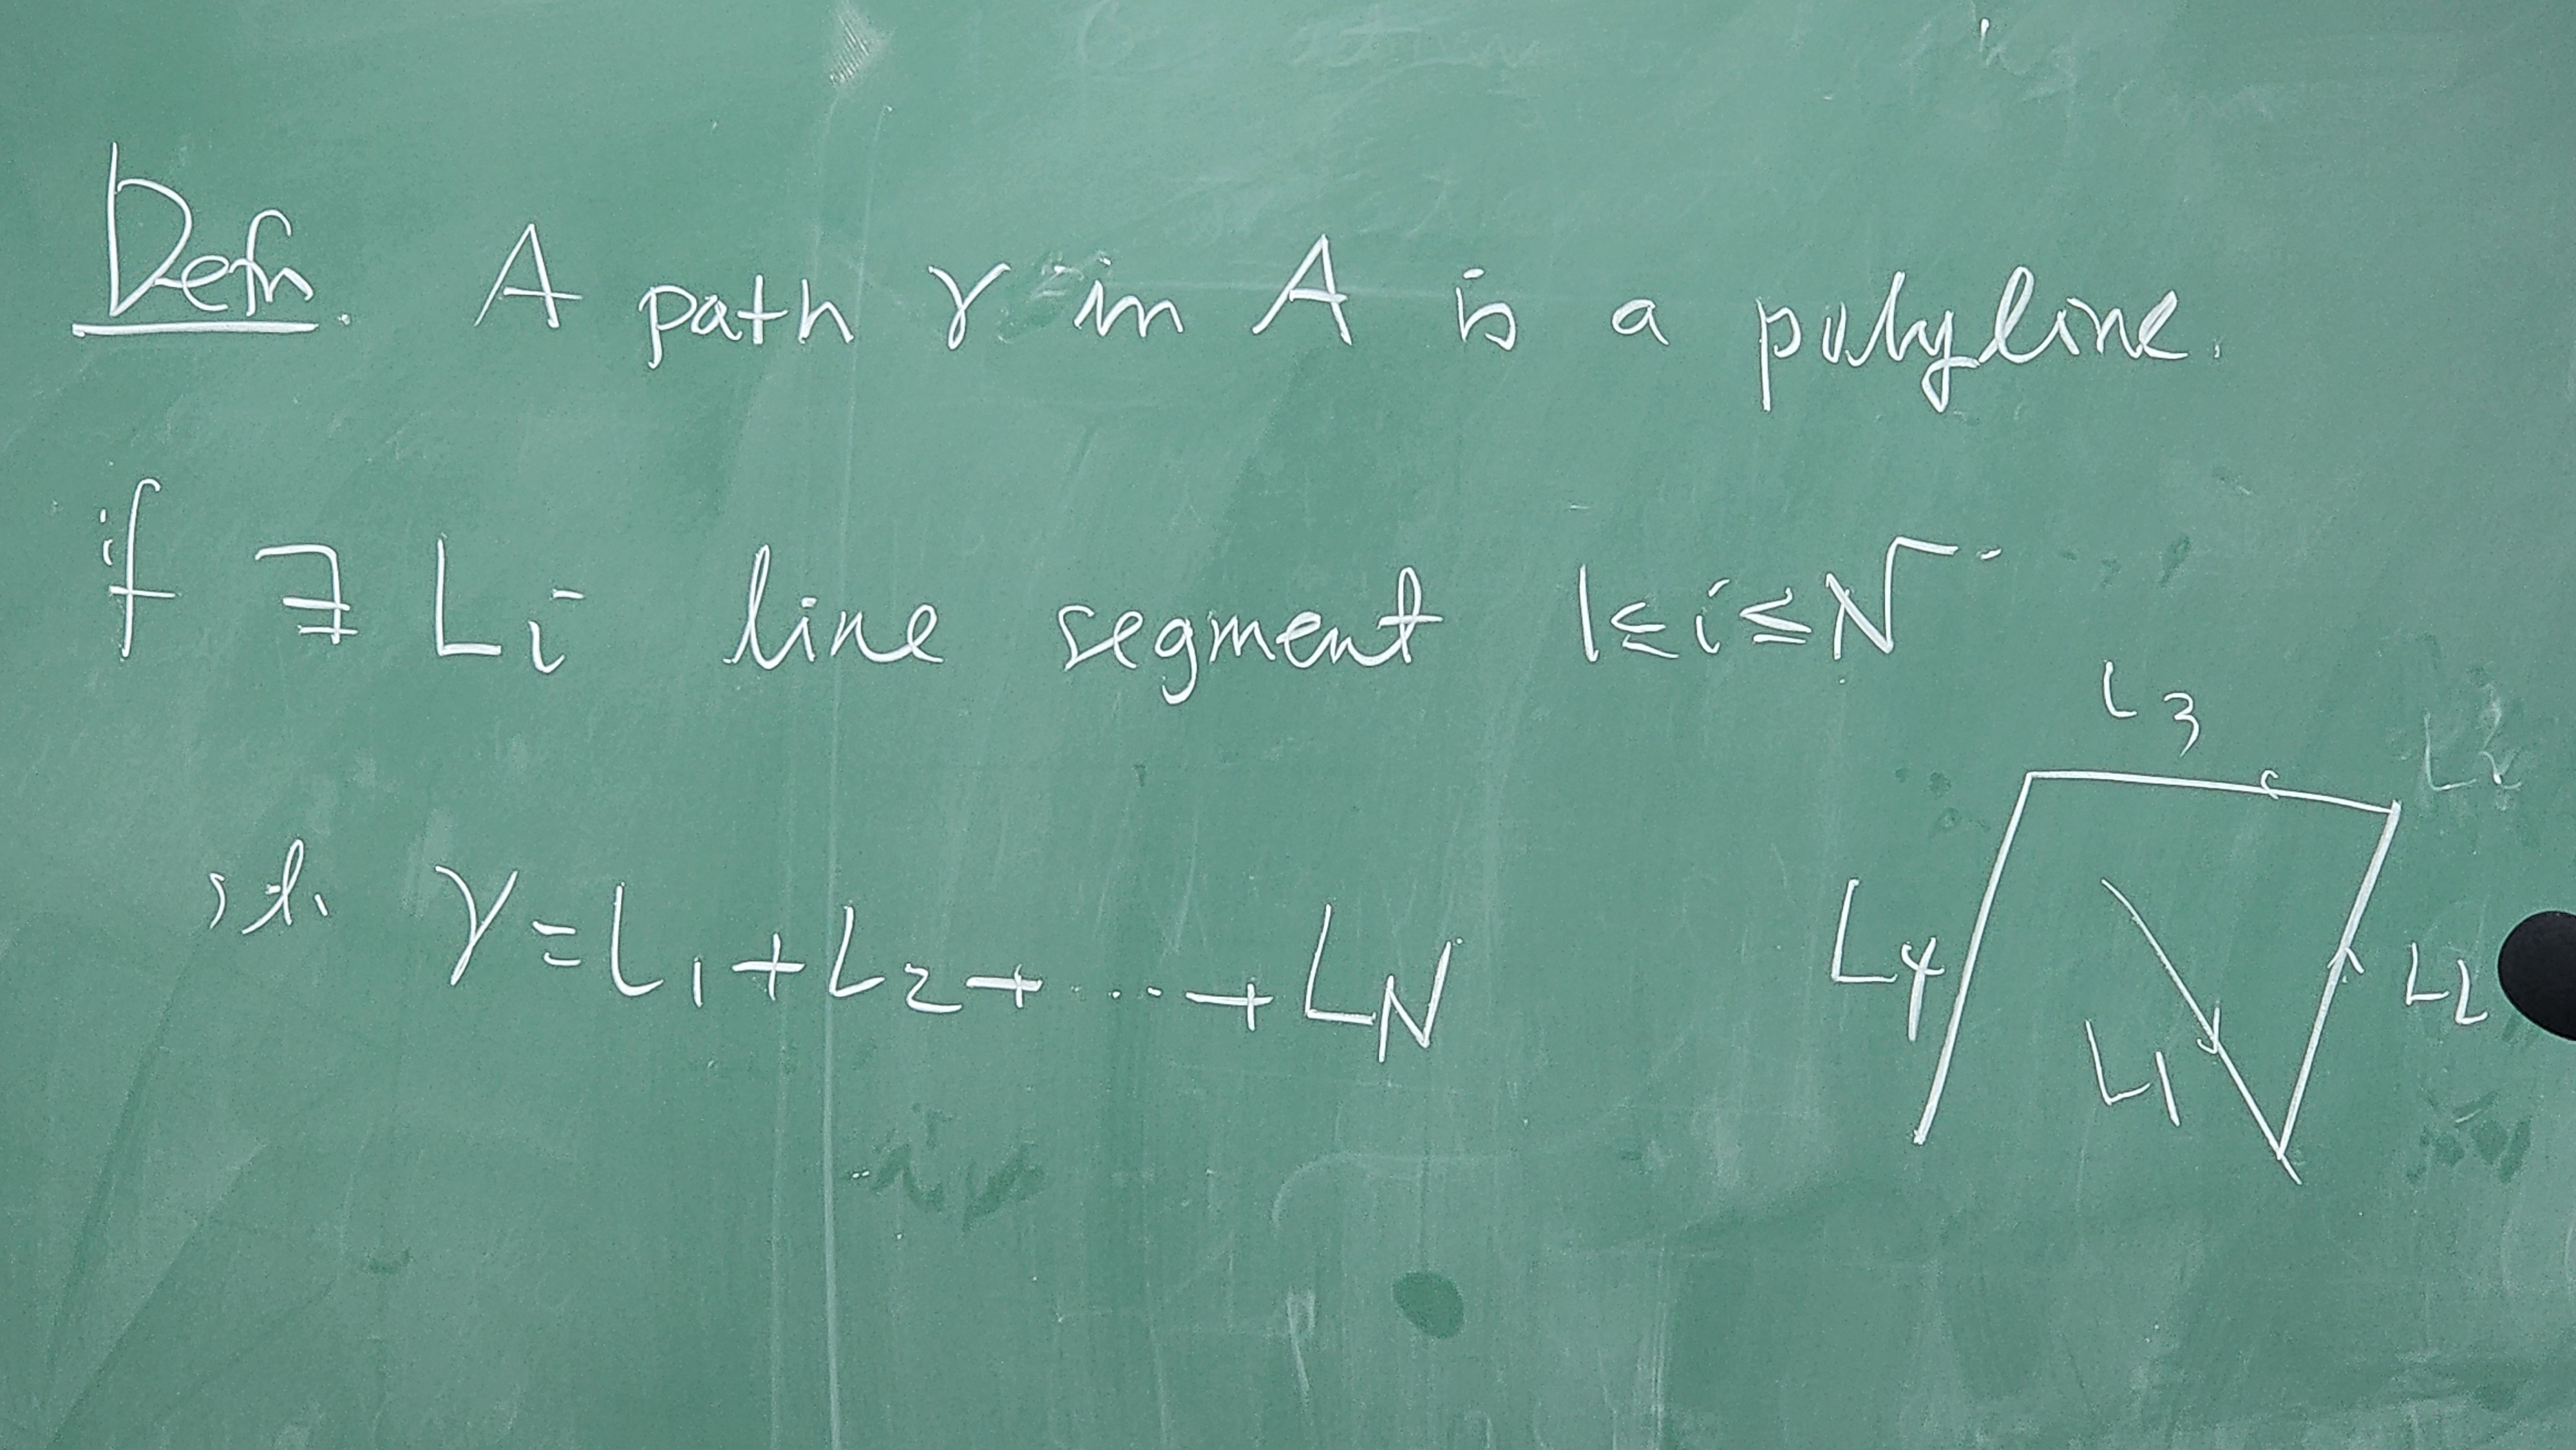 Defn. A path γ in A is a polyline.
if ∃ Li line segment 1≤i≤N
s.t. γ=L1+L2+...+LN
L3
L2
L4
L2
L1